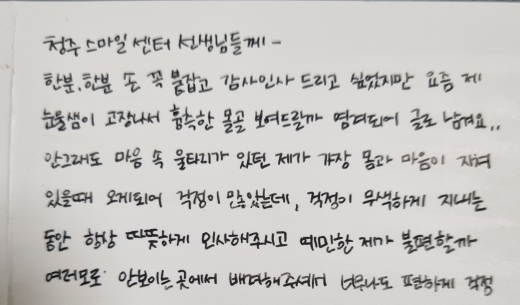 청주 스마일 센터 선생님들께 -
한분, 한분 손 꼭 붙잡고 감사인사 드리고 싶었지만 요즘 제
눈물샘이 고장나서 흉측한 몰골 보여드릴까 염려되어 글로 남겨요..
안그래도 마음 속 울타리가 있던 제가 가장 몸과 마음이 지쳐
있을때 오게되어 걱정이 많았는데, 걱정이 무색하게 지내는
동안 항상 따뜻하게 인사해주시고 예민한 제가 불편할까
여러모로 안보이는 곳에서 배려해주셔서 너무나도 편하게 걱정